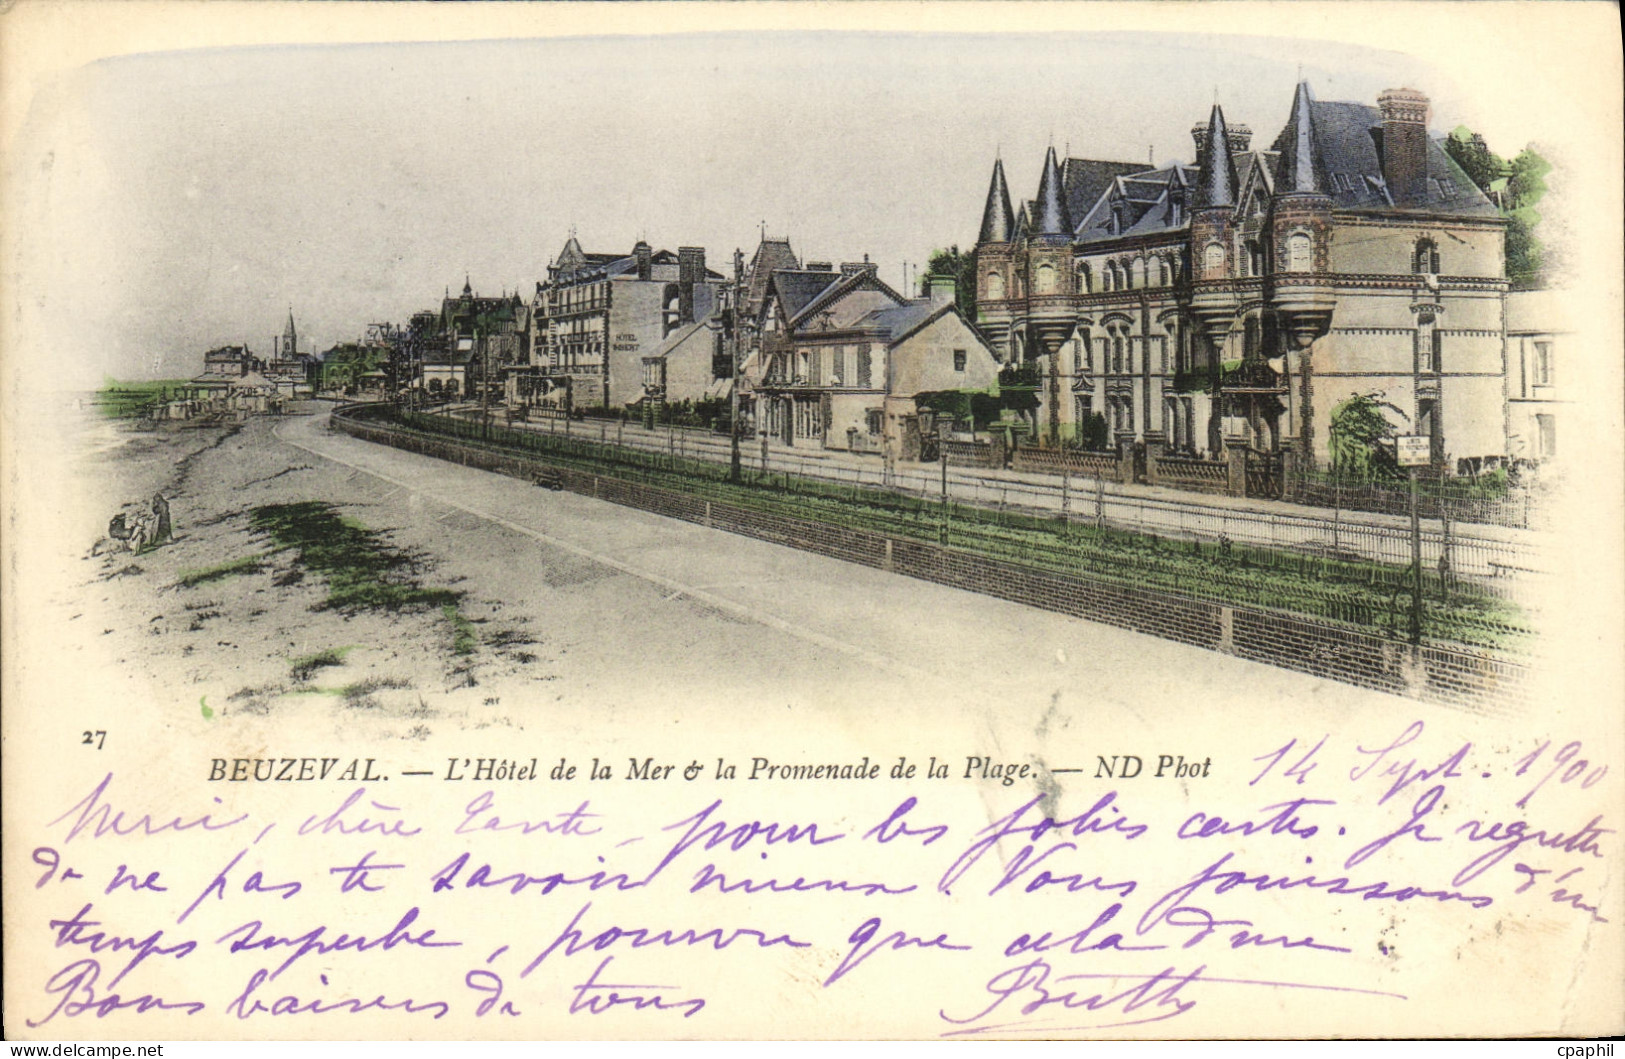 HOTEL IMBERT
27
BEUZEVAL. — L'Hôtel de la Mer & la Promenade de la Plage. — ND Phot
14 Sept. 1900
Merci, chère Tante, pour les jolies cartes. Je regrette
de ne pas te savoir mieux. Vous jouissons d'un
temps superbe, pourvu que cela dure.
Bons baisers de tous
Berthe
delcampe.net
cpaphil